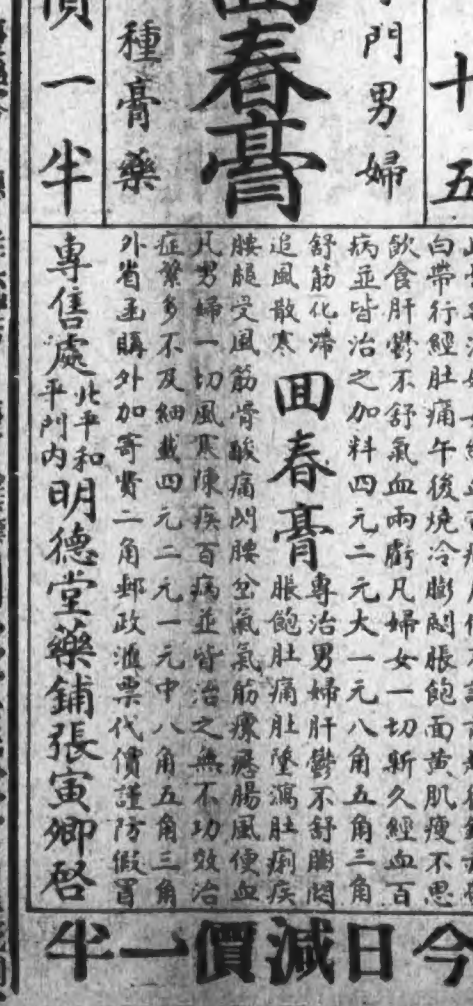 十五
門男婦
回春膏
種膏藥
價一半
白帶行經肚痛午後燒冷膨悶脹飽面黄肌瘦不思
飲食肝鬱不舒氣血兩虧凡婦女一切新久經血百
病並皆治之加料四元二元大一元八角五角三角
舒筋化滯
追風散寒
回春膏
專治男婦肝鬱不舒膨悶
脹飽肚痛肚墜瀉肚痢疾
腰腿受風筋骨酸痛閃腰岔氣氣筋瘰癧腸風便血
凡男婦一切風寒陳疾百病並皆治之無不功效治
症繁多不及細載四元二元一元中八角五角三角
外省函購外加寄費二角郵政滙票代價謹防假冒
專售處
北平和
平門内
明德堂藥鋪張寅卿啓
今日減價一半